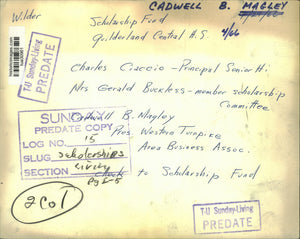 CADWELL B. MAGLEY
Wilder
Scholarship Fund
Guilderland Central H.S. 4/66
Charles Ciaccio - Principal Senior H.
Mrs Gerald Buckless - member scholarship
Committee
T-U Sunday-Living
PREDATE
Cadwell B. Magley
Pres. Western Turnpike
Area Business Assoc.
Check to Scholarship Fund
SUNDAY
PREDATE COPY
LOG NO. 15
SLUG Scholarships
SECTION Living
Pg L-5
2 Col
T-U Sunday-Living
PREDATE